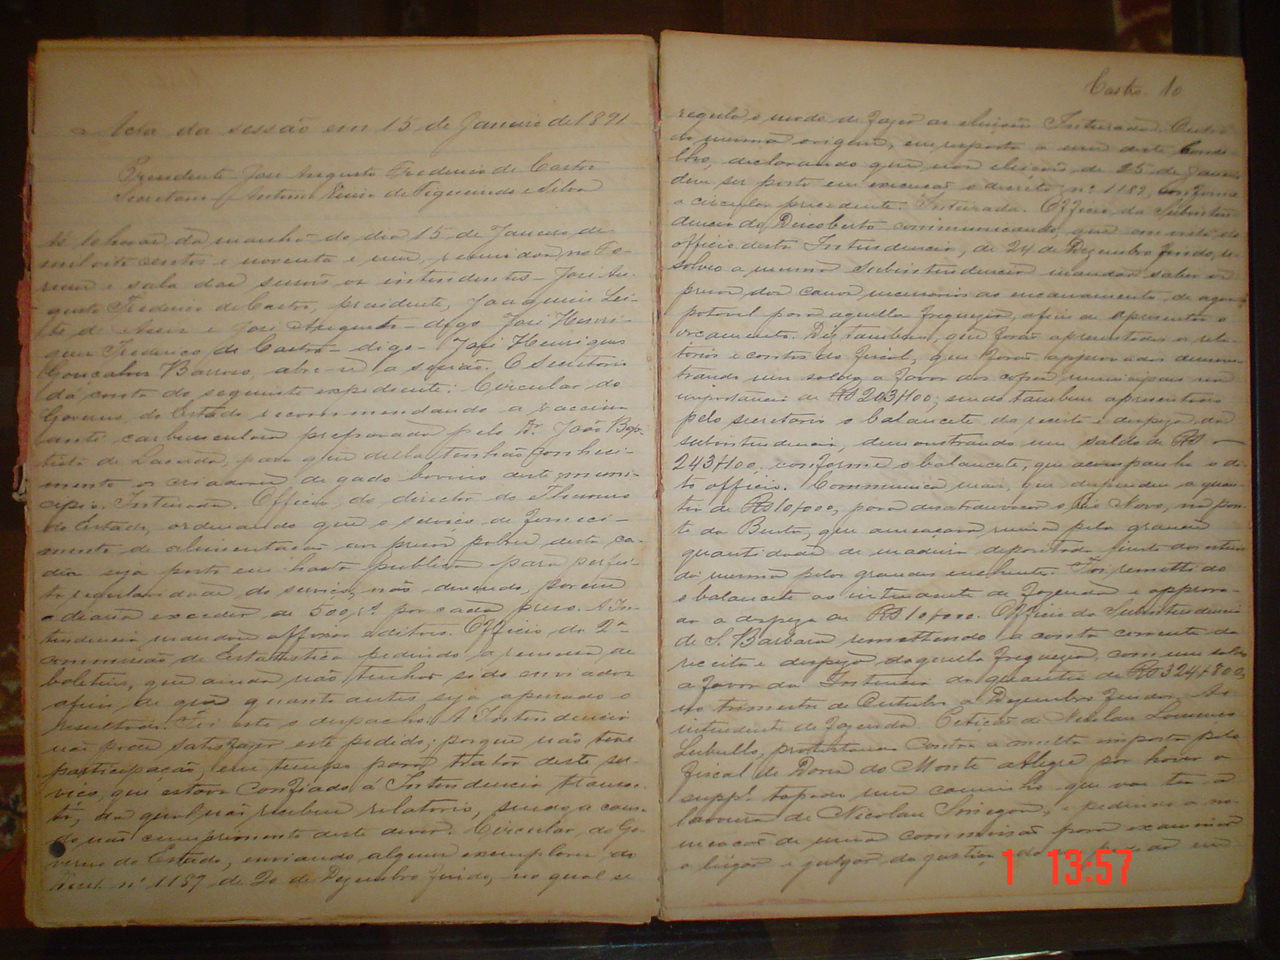 Acta da sessão em 15 de Janeiro de 1891
Presidente José Augusto Frederico de Castro
Secretario Antonio de Figueiredo e Silva
horas da manhã do dia 15 de Janeiro de
mil oito centos e noventa e um, reunidos no Fo-
rum e sala das sessões os intendentes José Au-
gusto Frederico de Castro, presidente, Joaquim Lei-
te de e José digo José Henri-
que Frederico de Castro digo José Henriques
Gonçalves Barroso, abre-se a sessão. O Secretario
dá conta do seguinte expediente: Circular do
Governo do Estado recommendando a vaccina
anti carbunculosa preparada pelo Dr. João Bap-
tista de Lacerda, para que della tenhão conheci-
mento os criadores de gado bovino deste muni-
cipio. Inteirada. Officio do director do Thesouro
do Estado, ordenando que o serviço de forneci-
mento de alimentação aos presos pobres desta ca-
dia seja posto em hasta publica para perfei-
ta regularidade do serviço, não devendo, porem
a diaria exceder de 500 rs por cada preso. A In-
tendencia mandou affixar editaes. Officio da 2ª
commissão de Estatistica pedindo a remessa de
boletins, que ainda não tenhão sido enviados
afim de que quanto antes seja apurado o
resultado. Foi este o despacho: A Intendencia
não pode satisfazer este pedido; porque não teve
participação, em tempo para tratar deste ser-
viço, que estava confiado á Intendencia transac-
ta, da qual não recebeu relatorio, sendo a causa
do não cumprimento deste dever. Circular do Go-
verno do Estado, enviando alguns exemplares do
Decr. nº 1189 de 20 de Dezembro findo, no qual se
Castro 10
regula o modo de fazer as eleições. Inteirada. Outro
da mesma origem, em resposta a um deste Conse-
lho, declarando que nas eleições de 25 de Janeiro
deve ser posto em execução o decreto nº 1189, conforme
a circular precedente. Inteirada. Officio da Subinten-
dencia do Descoberto communicando, que em vista do
officio desta Intendencia, de 24 de Dezembro findo, re-
solveu a mesma Subintendencia mandar saber os
preços dos canos necessarios ao encanamento de agua
potavel para aquella freguezia, afim de apresentar o
orçamento. Diz tambem, que forão apresentados os rela-
torios e contas do fiscal, que forão approvadas demons-
trando um saldo a favor dos cofres municipaes na
importancia de R$ 243#100; sendo tambem apresentado
pelo secretario o balancete da receita e despeza da
subintendencia, demonstrando um saldo de R$
243#100, conforme o balancete, que acompanha o di-
to officio. Communica mais, que despendeu a quan-
tia de R$ 10#000, para desatravancar o Rio Novo, na pon-
te da que ameaçava ruina pela grande
quantidade de madeira depositada junto aos esteios
da mesma pelas grandes enchentes. Foi remettido
o balancete ao intendente de fazenda e approva-
da a despeza de R$ 10#000. Officio da Subintendencia
de S. Barbara remettendo a conta corrente da
receita e despeza daquella freguezia, com um saldo
a favor da Intend. da quantia de R$ 324#800,
no trimestre de Outubro a Dezembro findos. Ao
intendente de fazenda. Petição de Nicolau Lourenço
protestando contra a multa imposta pelo
fiscal de Dores do Monte Alegre por haver o
suppe. tapado um caminho que vai ter á
lavoura de Nicolau e pedindo a no-
meação de uma commissão para examinar
o lugar e julgar da justiça do
1 13:57